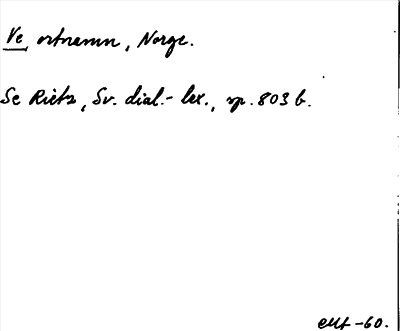 Ve, ortnamn, Norge.
Se Rietz, Sv. dial.-lex., sp. 803 b.
-60.